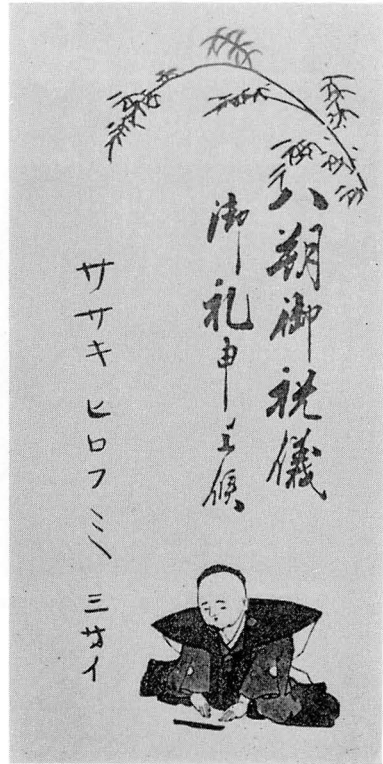 八朔御祝儀
御礼申上候
ササキヒロフミ 三サイ